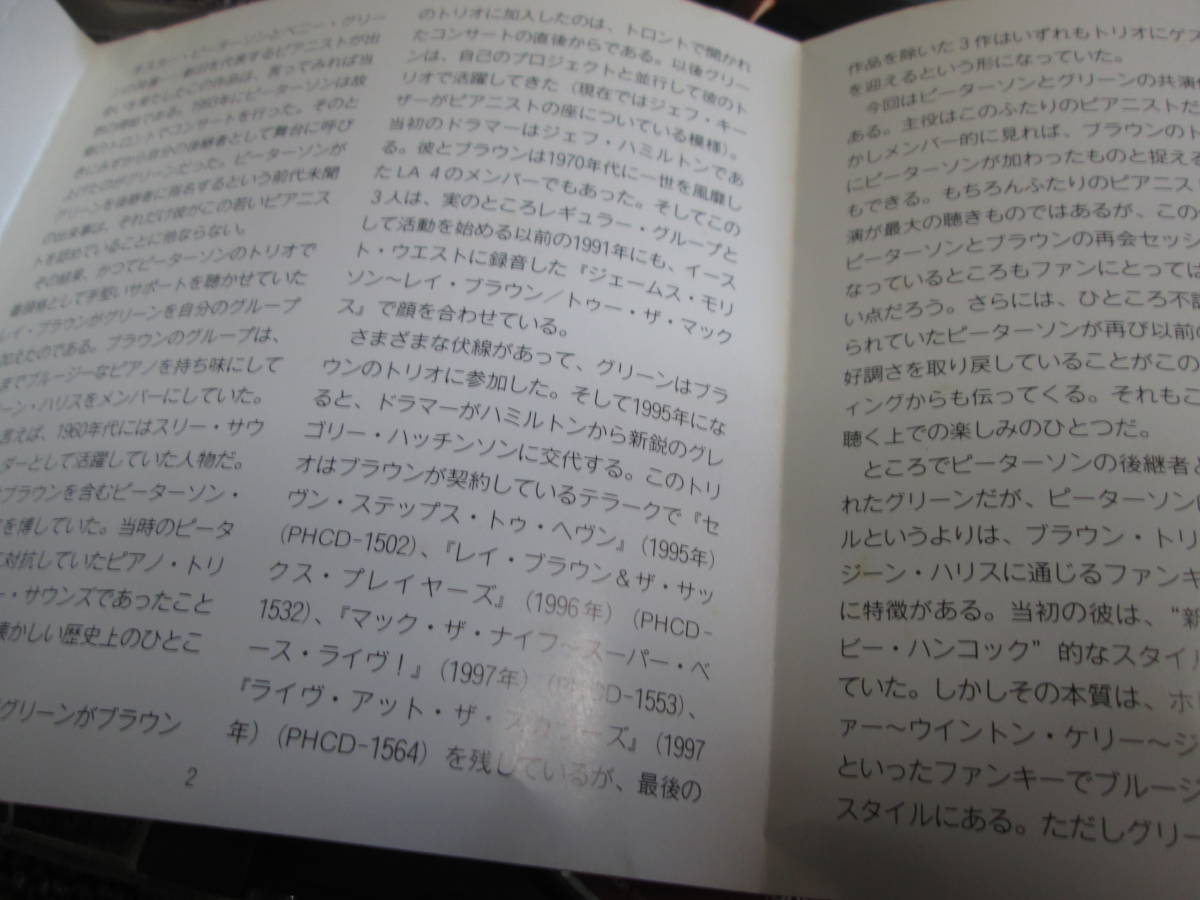 オスカー・ピーターソンとベニー・グリー
ンの共演──新旧を代表するピアニストが出
会いを果たしたこの作品は、言ってみれば当
然の帰結である。1993年にピーターソンは故
郷のトロントでコンサートを行った。そのと
きにみずから自分の後継者として舞台に呼び
上げたのがグリーンだった。ピーターソンが
グリーンを後継者に指名するという前代未聞
の出来事は、それだけ彼がこの若いピアニス
トを認めていることに他ならない。
その結果、かつてピーターソンのトリオで
番頭格として手堅いサポートを聴かせていた
レイ・ブラウンがグリーンを自分のグループ
加えたのである。ブラウンのグループは、
までブルージーなピアノを持ち味にして
ーン・ハリスをメンバーにしていた。
言えば、1960年代にはスリー・サウ
ダーとして活躍していた人物だ。
ブラウンを含むピーターソン・
を博していた。当時のピータ
対抗していたピアノ・トリ
ー・サウンズであったこと
懐かしい歴史上のひとこ
グリーンがブラウン
のトリオに加入したのは、トロントで開かれ
たコンサートの直後からである。以後グリー
ンは、自己のプロジェクトと並行して彼のト
リオで活躍してきた（現在ではジェフ・キー
ザーがピアニストの座についている模様）。
当初のドラマーはジェフ・ハミルトンであ
る。彼とブラウンは1970年代に一世を風靡し
たLA 4のメンバーでもあった。そしてこの
3人は、実のところレギュラー・グループと
して活動を始める以前の1991年にも、イース
ト・ウエストに録音した『ジェームス・モリ
ソン～レイ・ブラウン／トゥー・ザ・マック
ス』で顔を合わせている。
さまざまな伏線があって、グリーンはブラ
ウンのトリオに参加した。そして1995年にな
ると、ドラマーがハミルトンから新鋭のグレ
ゴリー・ハッチンソンに交代する。このトリ
オはブラウンが契約しているテラークで『セ
ヴン・ステップス・トゥ・ヘヴン』（1995年）
（PHCD-1502）、『レイ・ブラウン＆ザ・サッ
クス・プレイヤーズ』（1996年）（PHCD-
1532）、『マック・ザ・ナイフ～スーパー・ベ
ース・ライヴ！』（1997年）（PHCD-1553）、
『ライヴ・アット・ザ・スカラーズ』（1997
年）（PHCD-1564）を残しているが、最後の
2
作品を除いた3作はいずれもトリオにゲス
を迎えるという形になっていた。
今回はピーターソンとグリーンの共演
ある。主役はこのふたりのピアニストだ
かしメンバー的に見れば、ブラウンのト
にピーターソンが加わったものと捉える
もできる。もちろんふたりのピアニス
演が最大の聴きものではあるが、この
ピーターソンとブラウンの再会セッシ
なっているところもファンにとっては
い点だろう。さらには、ひところ不調
られていたピーターソンが再び以前の
好調さを取り戻していることがこの
ィングからも伝ってくる。それもこ
聴く上での楽しみのひとつだ。
ところでピーターソンの後継者と
れたグリーンだが、ピーターソン
ルというよりは、ブラウン・トリ
ジーン・ハリスに通じるファンキ
に特徴がある。当初の彼は、“新
ビー・ハンコック”的なスタイ
ていた。しかしその本質は、ホ
ァー～ウイントン・ケリー～ジ
といったファンキーでブルージ
スタイルにある。ただしグリー